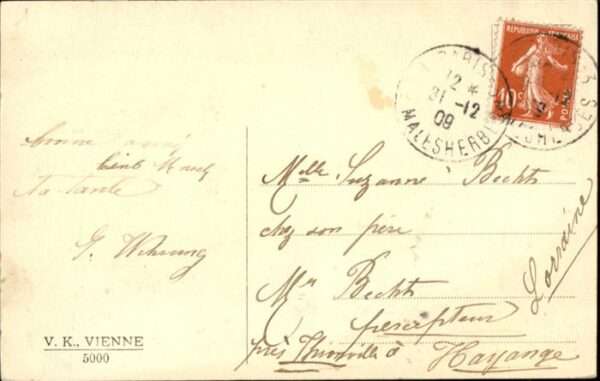 REPUBLIQUE FRANÇAISE
10c
POSTES
PARIS
12 *
31 -12
09
MALESHERBES
bonne année
ta tante
Melle Suzanne Bechts
chez son père
Mr Bechts
percepteur
près Thionville à Hayange
Lorraine
V. K., VIENNE
5000